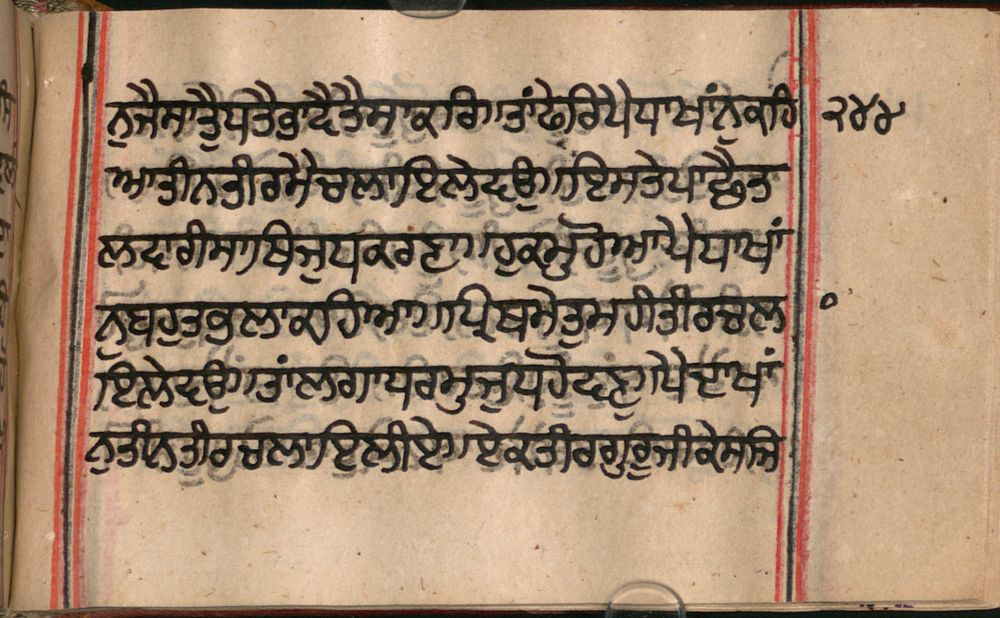 ਨੁਜੈਸਾਤ੍ਰੈਪਤੈਭਾਦੈਤੈਸਾਕਰਿ।ਤਾਂਫੇਰਿਪੈਧਾਖਾਂਨੁਕਹਿ ੨੪੪
ਆਤੀਨਤੀਰਮੈਚਲਾਇਲੇਦਉ।ਇਸਤੇਪਾਛੈਤ
ਲਵਾਰੀਸਾਥਿਜੁਧਕਰਣਾ।ਹੁਕਮੁਹੋਆਪੈਧਾਖਾਂ
ਨੁਬਹੁਤਭਲਾਕਹਿਆ॥ਪ੍ਰਿਥਮੇਤੁਮਹੀਤੀਰਚਲ
ਇਲੇਵਉ।ਤਾਂਲਗਾਧਰਮੁਜੁਧਹੋਵਣ।ਪੈਦਾਖਾਂ
ਨੁਤੀਨਤੀਰਚਲਾਇਲੀਏ।ਏਕਤੀਰਗੁਰੁਜੀਕੇਸਜਿ